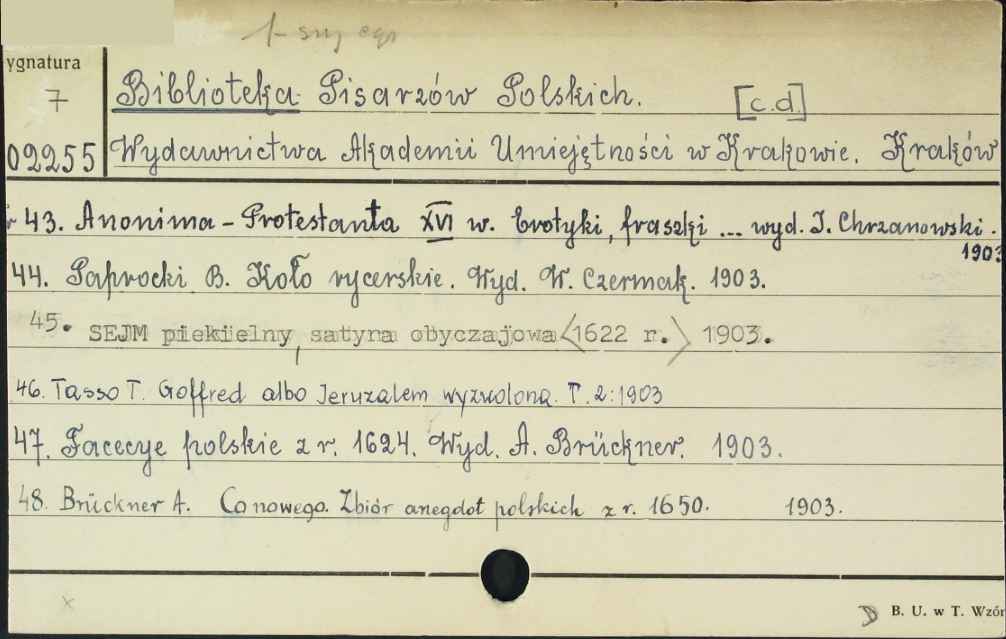 ygnatura
7
Biblioteka Pisarzów Polskich. [c.d.]
02255 Wydawnictwa Akademii Umiejętności w Krakowie. Kraków
43. Anonima - Protestanta XVI w. Erotyki, fraszki ... wyd. I. Chrzanowski.
1903
44. Paprocki B. Koło rycerskie. Wyd. W. Czermak. 1903.
45. SEJM piekielny, satyra obyczajowa <1622 r.> 1903.
46. Tasso T. Goffred albo Jeruzalem wyzwolona. T. 2: 1903
47. Facecye polskie z r. 1624. Wyd. A. Brückner. 1903.
48. Brückner A. Co nowego. Zbiór anegdot polskich z r. 1650. 1903.
x
B. U. w T. Wzór